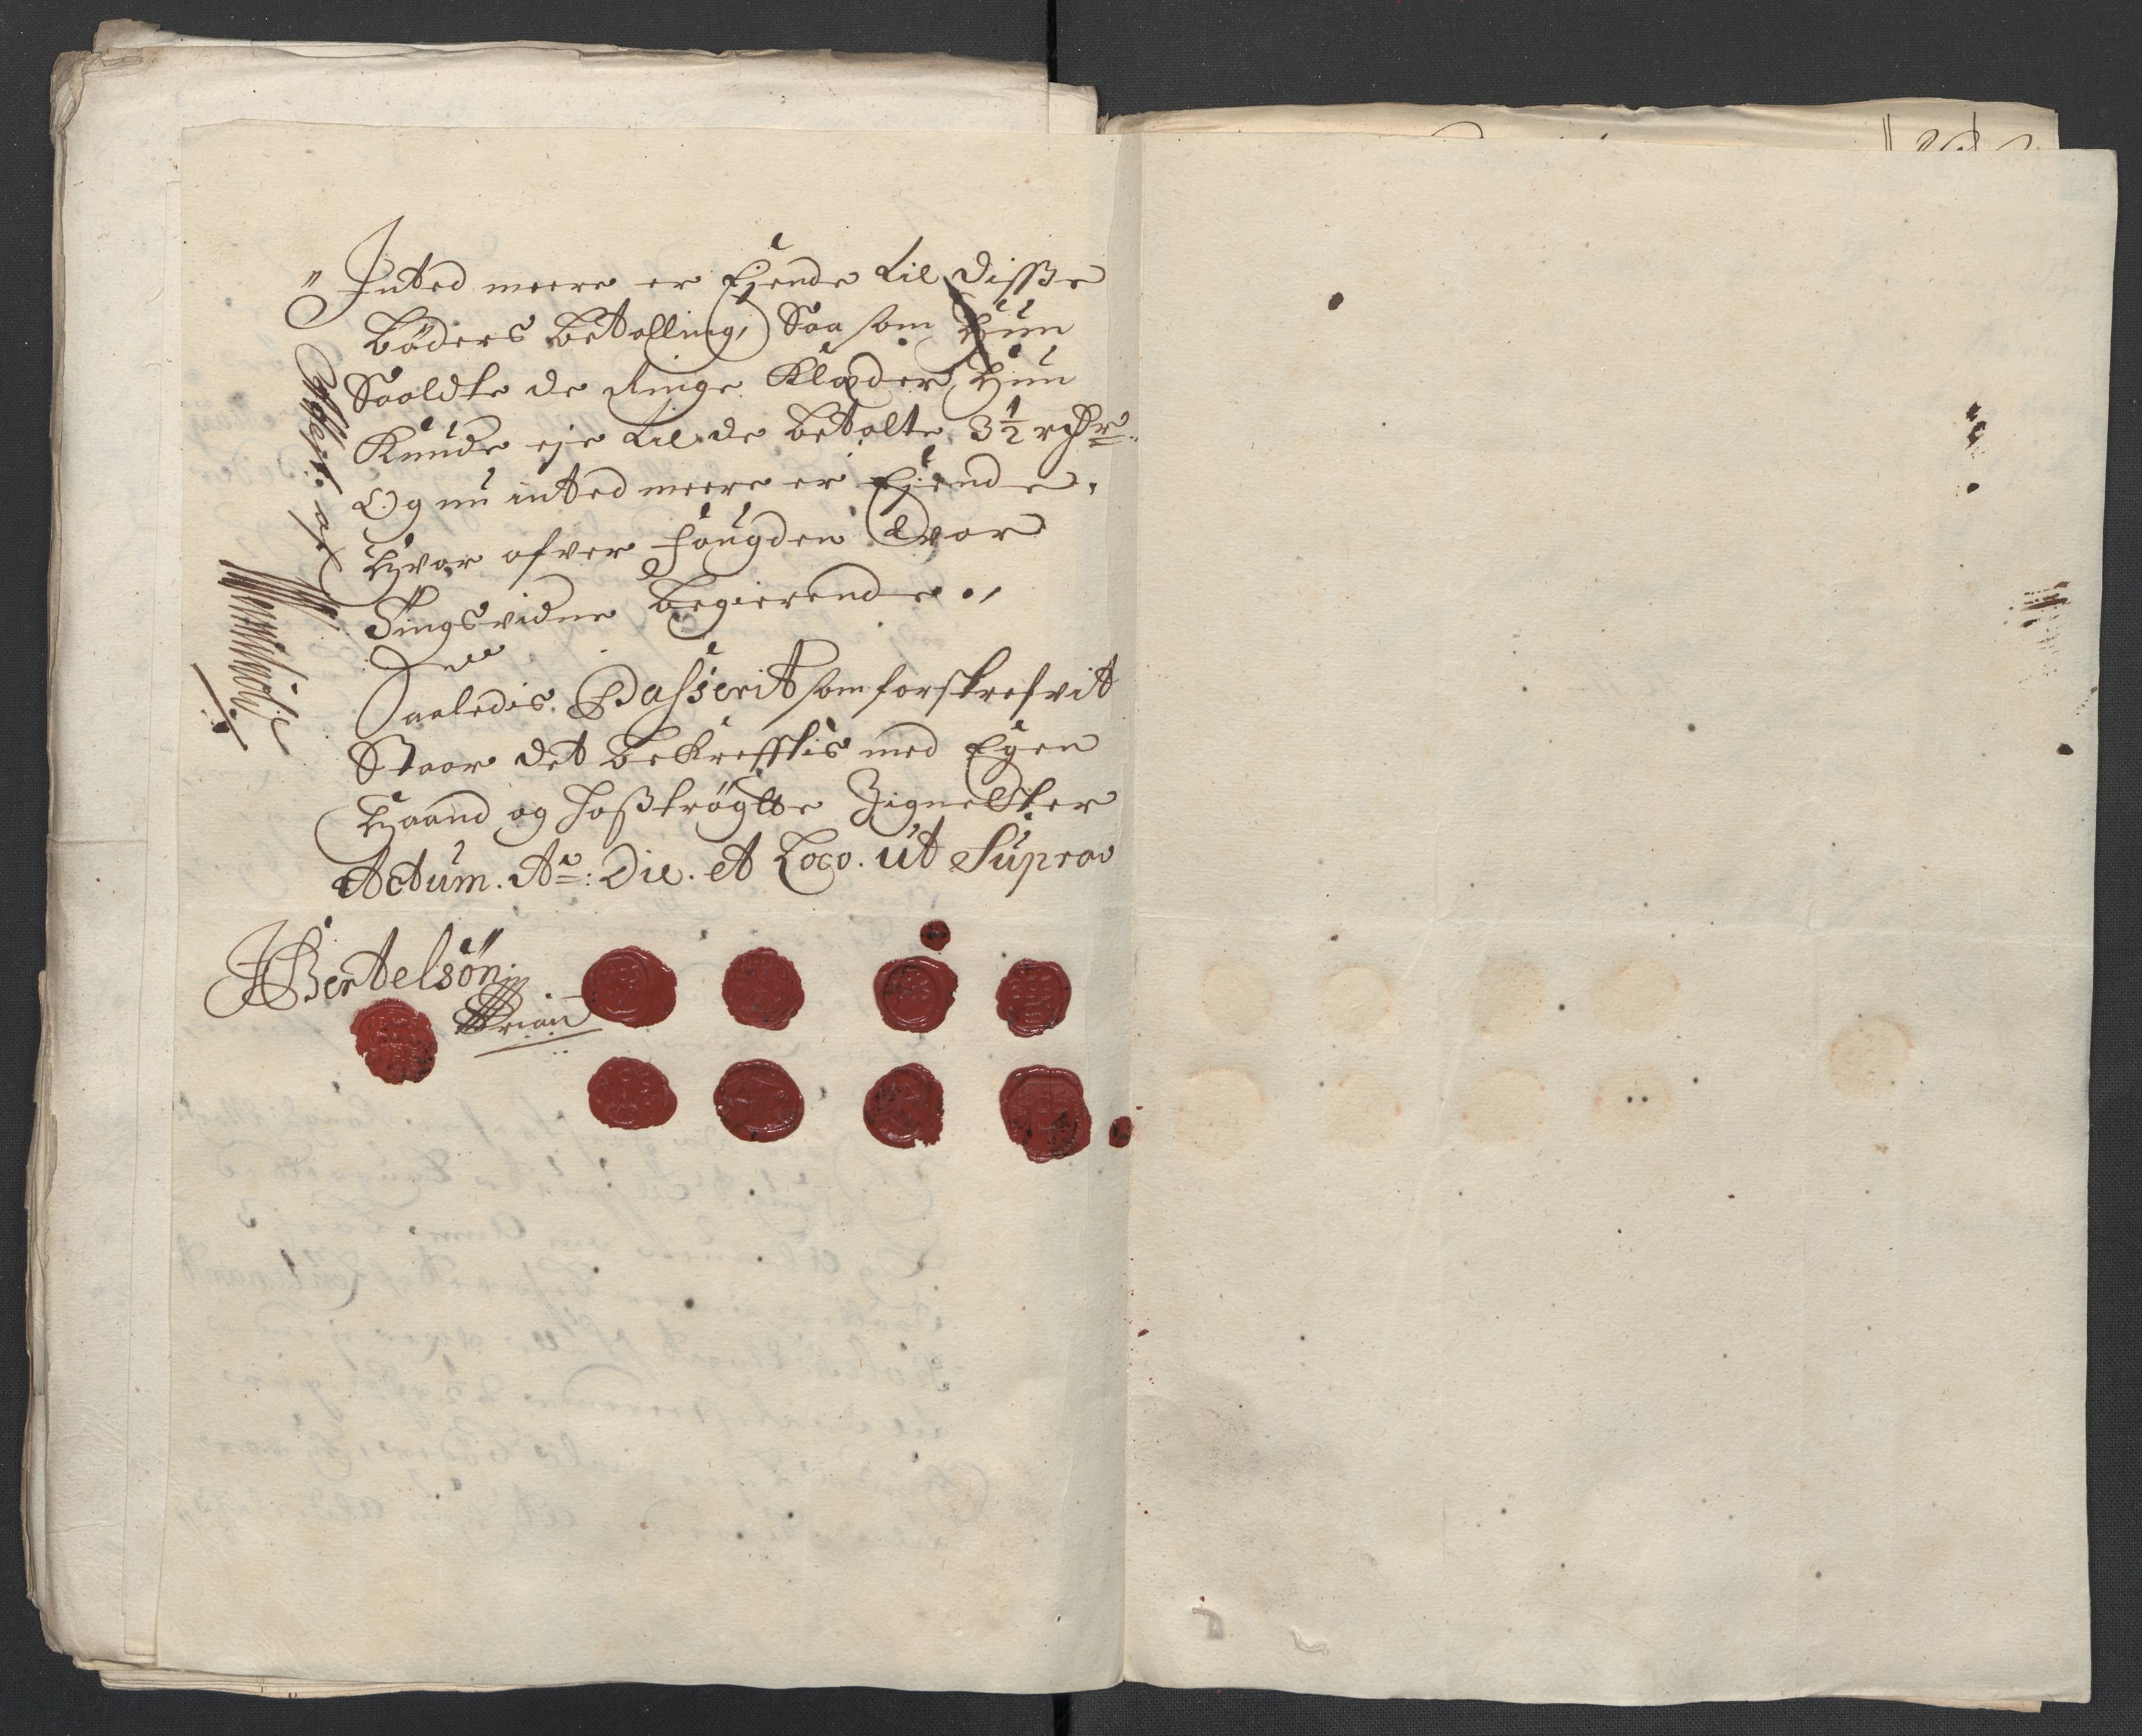 Inted meere er Ejende til disse
Böders Betalling, Saa som hun
Saaldte de Ringe Klæder, hun
Kunde eje til de betalte 3½ rdr
Og nu inted meere er Ejende,
Hvor ofver fougden var
Tingsvidne begierende.,
Saaledis Passerit som forskrefvit
Staar det bekrefftis med Egen
Haand og hoströgte Zigneter
Actum. Ao: Die. et Loco. ut Supra
JBertelsön